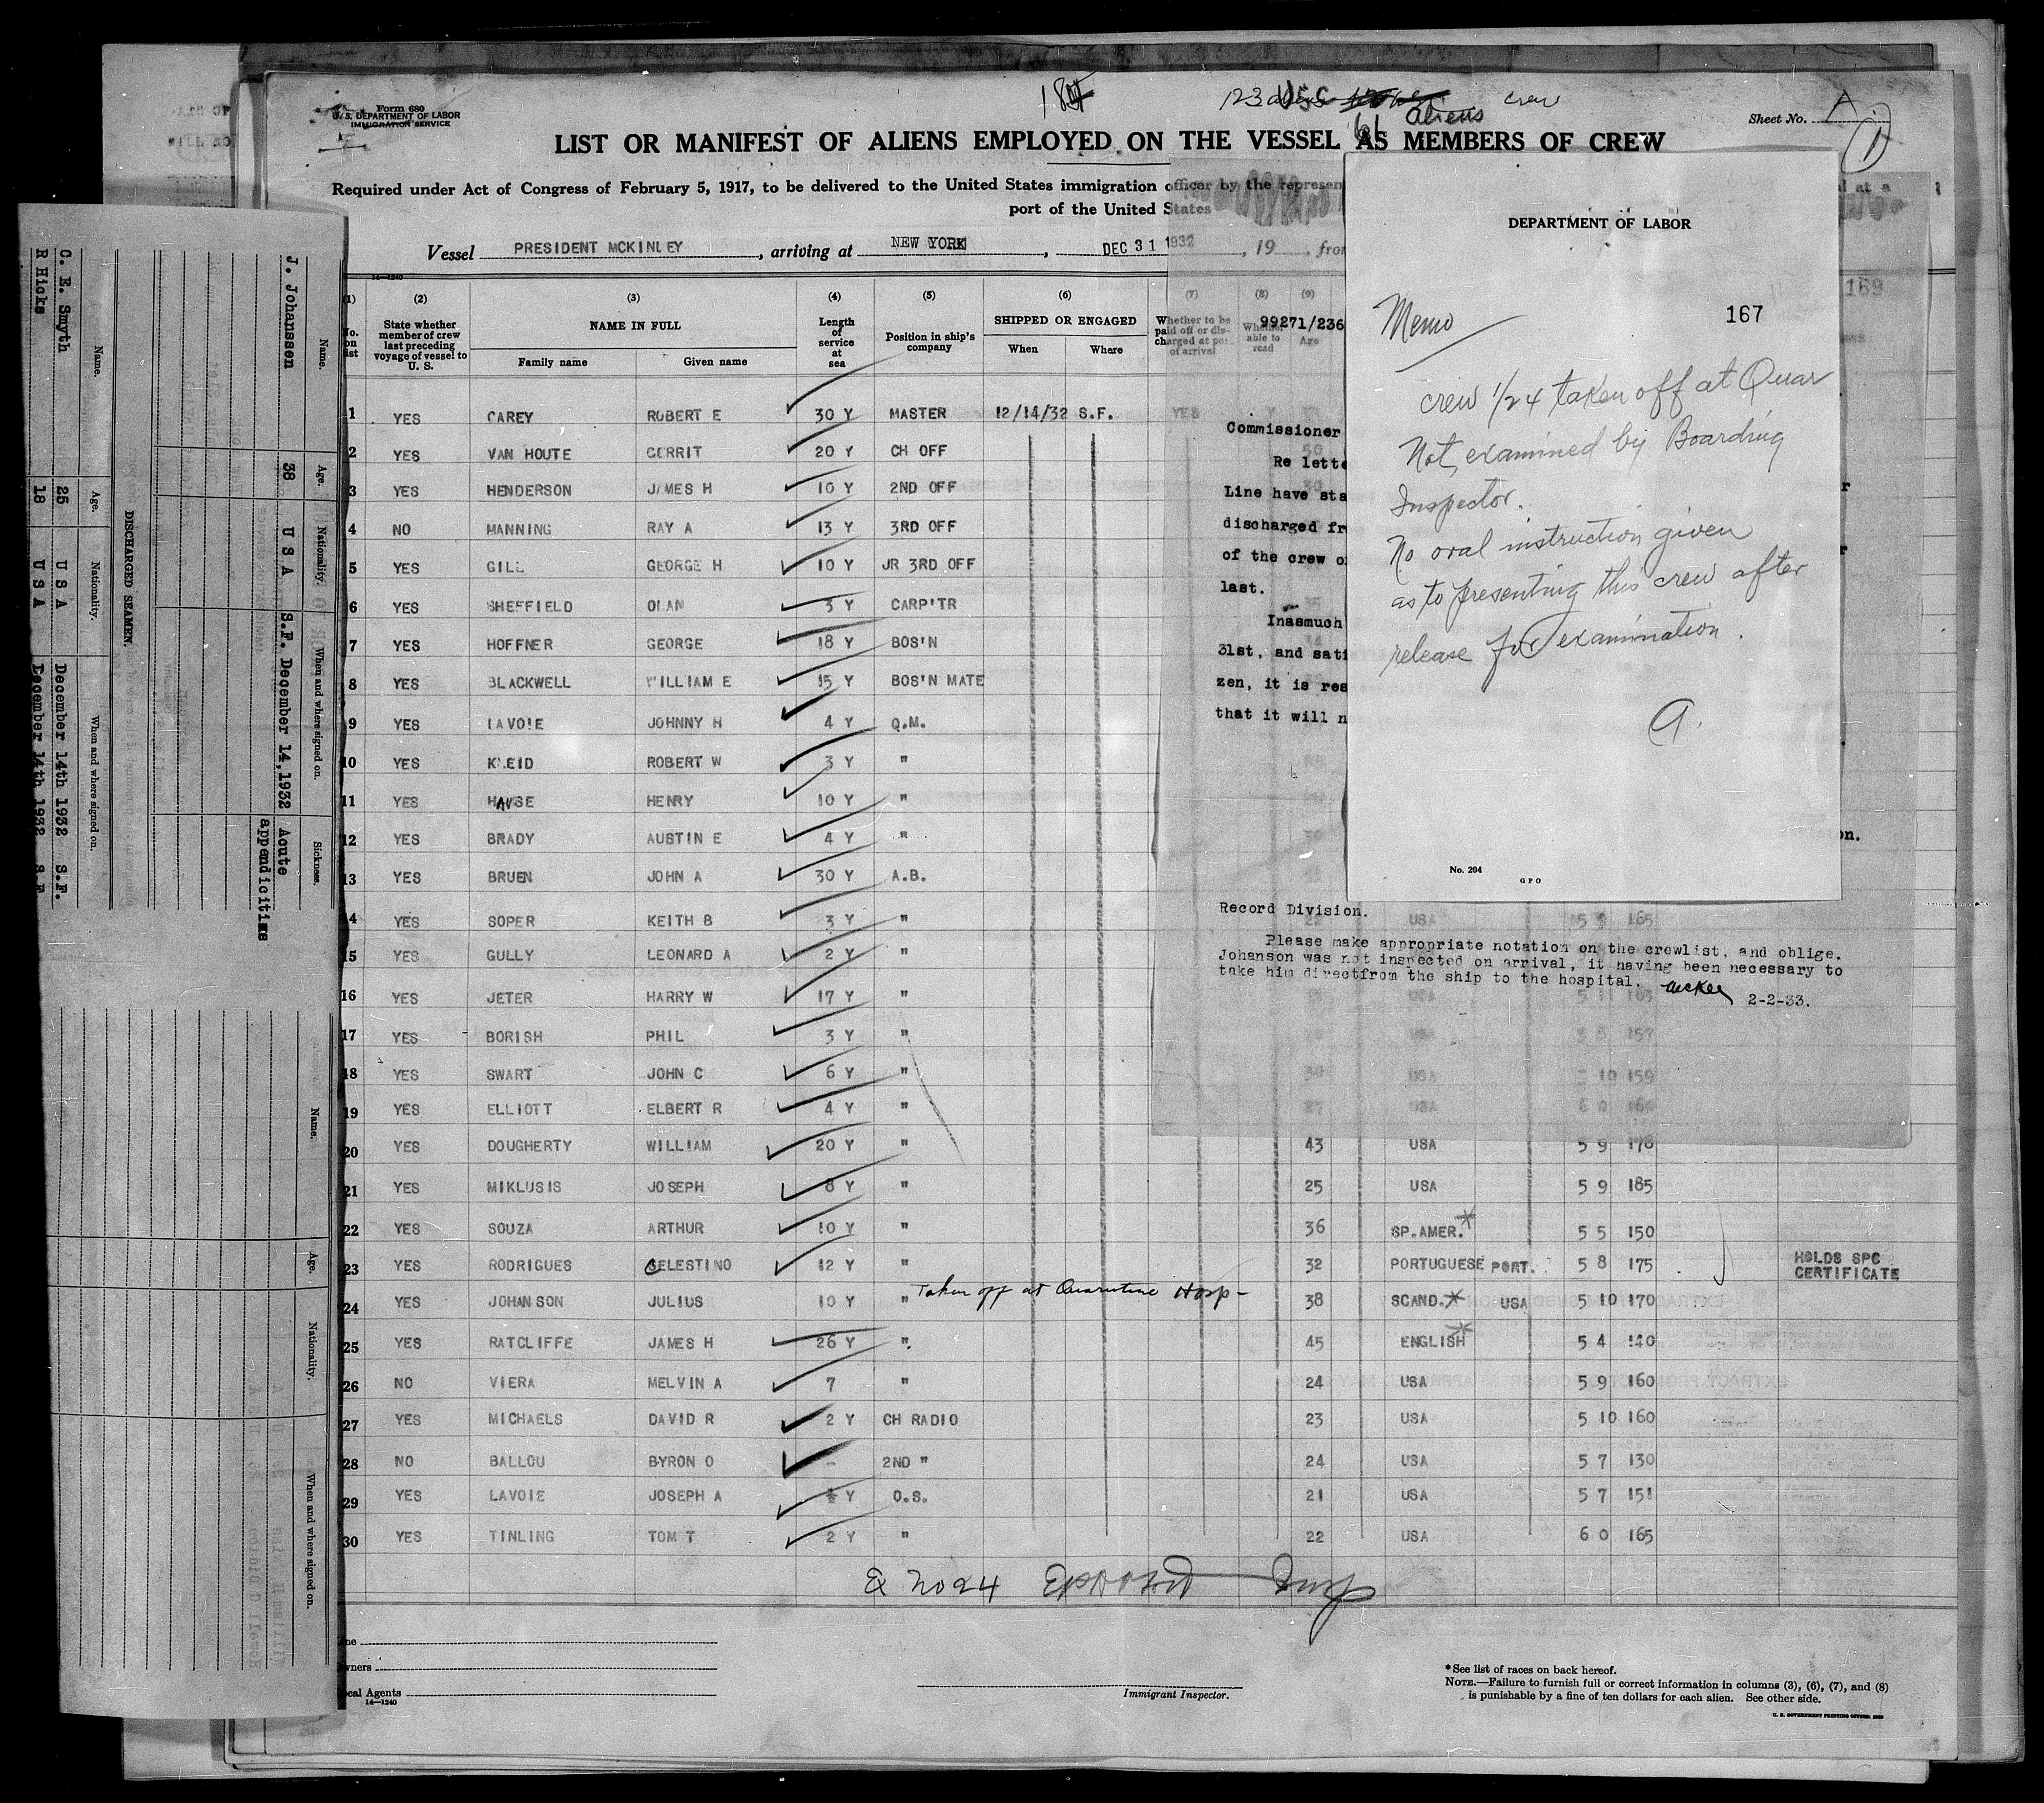 Form 680
U. S. DEPARTMENT OF LABOR
IMMIGRATION SERVICE
Sheet No.
1
LIST OR MANIFEST OF ALIENS EMPLOYED ON THE VESSEL AS MEMBERS OF CREW
aliens
crew
Required under Act of Congress of February 5, 1917, to be delivered to the United States immigration officer by the represen
port of the United States
Vessel PRESIDENT MCKINLEY, arriving at NEW YORK, DEC 31 1932, 19 , from
14—1240
(1) (2) (3) (4) (5) (6) (7) (8) (9)
No. on list
State whether member of crew last preceding voyage of vessel to U. S.
NAME IN FULL
Family name Given name
Length of service at sea
Position in ship's company
SHIPPED OR ENGAGED
When Where
Whether to be paid off or discharged at port of arrival
Whether able to read
Age
1 YES CAREY ROBERT E 30 Y MASTER 12/14/32 S.F. YES
2 YES VAN HOUTE GERRIT 20 Y CH OFF
3 YES HENDERSON JAMES H 10 Y 2ND OFF
4 NO MANNING RAY A 13 Y 3RD OFF
5 YES GILL GEORGE H 10 Y JR 3RD OFF
6 YES SHEFFIELD OLAN 3 Y CARP'TR
7 YES HOFFNER GEORGE 18 Y BOS'N
8 YES BLACKWELL WILLIAM E 15 Y BOS'N MATE
9 YES LAVOIE JOHNNY H 4 Y Q.M.
10 YES KLEID ROBERT W 3 Y "
11 YES HAUSE HENRY 10 Y "
12 YES BRADY AUSTIN E 4 Y "
13 YES BRUEN JOHN A 30 Y A.B.
14 YES SOPER KEITH B 3 Y " USA 5 9 165
15 YES GULLY LEONARD A 2 Y "
16 YES JETER HARRY W 17 Y " USA
17 YES BORISH PHIL 3 Y " USA 157
18 YES SWART JOHN C 6 Y " USA 10 159
19 YES ELLIOTT ELBERT R 4 Y " USA
20 YES DOUGHERTY WILLIAM 20 Y " 43 USA 5 9 178
21 YES MIKLUSIS JOSEPH 8 Y " 25 USA 5 9 185
22 YES SOUZA ARTHUR 10 Y " 36 SP.AMER.* 5 5 150
23 YES RODRIGUES CELESTINO 12 Y " 32 PORTUGUESE PORT. 5 8 175 HOLDS SPC CERTIFICATE
24 YES JOHANSON JULIUS 10 Y " Taken off at Quarantine Hosp- 38 SCAND.* USA 5 10 170
25 YES RATCLIFFE JAMES H 26 Y " 45 ENGLISH* 5 4 140
26 NO VIERA MELVIN A 7 " 24 USA 5 9 160
27 YES MICHAELS DAVID R 2 Y CH RADIO 23 USA 5 10 160
28 NO BALLOU BYRON O - 2ND " 24 USA 5 7 130
29 YES LAVOIE JOSEPH A ½ Y O.S. 21 USA 5 7 151
30 YES TINLING TOM T 2 Y " 22 USA 6 0 165
Line
Owners
Local Agents
14—1240
Immigrant Inspector.
*See list of races on back hereof.
NOTE.—Failure to furnish full or correct information in columns (3), (6), (7), and (8)
is punishable by a fine of ten dollars for each alien. See other side.
U. S. GOVERNMENT PRINTING OFFICE
DEPARTMENT OF LABOR
Memo
167
crew 1/24 taken off at Quar
Not examined by Boarding
Inspector.
No oral instruction given
as to presenting this crew after
release for examination.
A.
No. 204
GPO
99271/236
Commissioner
Re lette
Line have sta
discharged fr
of the crew o
last.
Inasmuch
31st, and sati
zen, it is res
that it will n
Record Division.
Please make appropriate notation on the crewlist, and oblige.
Johanson was not inspected on arrival, it having been necessary to
take him directfrom the ship to the hospital.
McKee 2-2-33.
Name. Age. Nationality. When and where signed on. Sickness.
J. Johanssen 38 U S A S.F. December 14,1932 Acute
appendicitims
DISCHARGED SEAMEN.
Name. Age. Nationality. When and where signed on.
C. E. Smyth 25 U S A December 14th 1932 S.F.
R Hicks 18 U S A December 14th 1932 S.F
Name. Age. Nationality. When and where signed on.